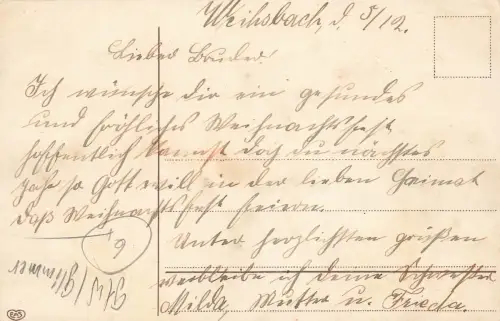 Weihsbach, d. 5/12.
Lieber Bruder!
Ich wünsche dir ein gesundes
und fröhliches Weihnachtsfest
hoffentlich kannst doch du nächstes
Jahr so Gott will in der lieben Heimat
daß Weihnachtsfest feiern.
Unter herzlichsten grüßen
verbleibe ich deine Schwester
Milda, Mutter u. Frieda.